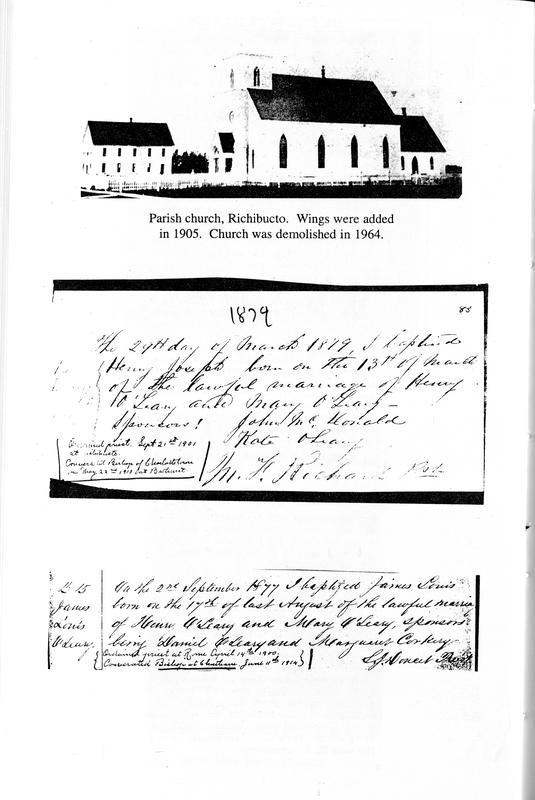 Parish church, Richibucto. Wings were added
in 1905. Church was demolished in 1964.
1879
85
The 29th day of March 1879 I baptised
Henry Joseph born on the 13th of March
of the lawful marriage of Henry
O'Leary and Mary O'Leary –
Sponsors! John Mc Donald
Kate O'Leary
M. F. Richard Pst
Ordained priest. Sept 21st 1901
at
Consecrated Bishop of Charlottetown
on May 22nd 1913 at Bathurst
B 15
James
Louis
O'Leary
On the 2nd September 1877 I baptized James Louis
born on the 17th of last August of the lawful marriage
of Henry O'Leary and Mary O'Leary, sponsors
being Daniel O'Leary and Margaret Corkery
Ordained priest at Rome April 14th 1900,
Consecrated Bishop at Chatham June 11th 1914
S. J. Doucet Priest